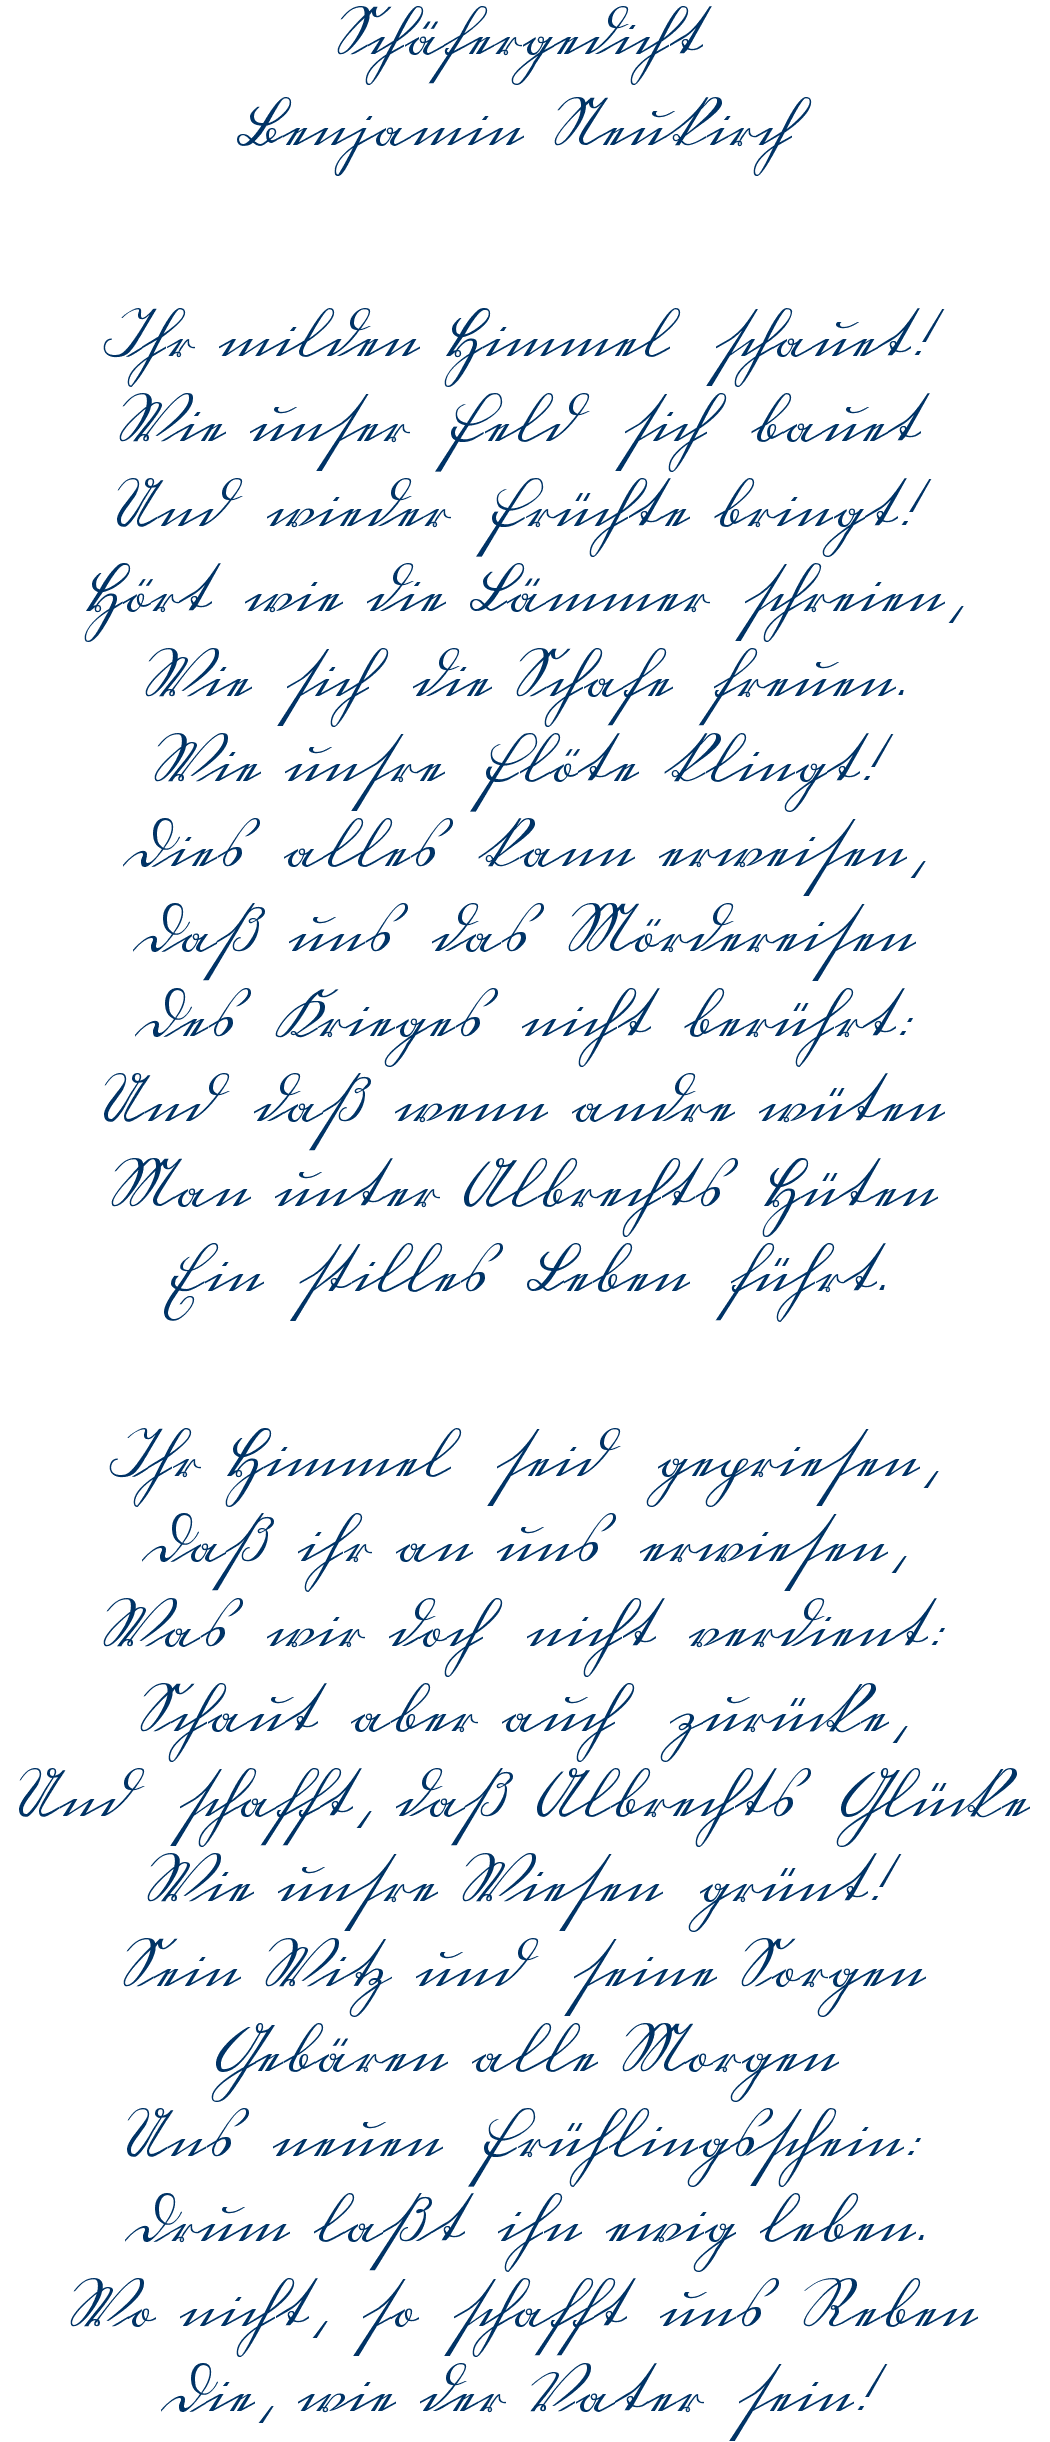 Schäfergedicht
Benjamin Neukirch
Ihr milden Himmel schauet!
Wie unser Feld sich bauet
Und wieder Früchte bringt!
Hört wie die Lämmer schreien,
Wie sich die Schafe freuen.
Wie unsre Flöte klingt!
Dies alles kann erweisen,
Daß uns das Mördereisen
Des Krieges nicht berührt:
Und daß wenn andre wüten
Man unter Albrechts Hüten
Ein stilles Leben führt.
Ihr Himmel seid gepriesen,
Daß ihr an uns erwiesen,
Was wir doch nicht verdient:
Schaut aber auch zurücke,
Und schafft, daß Albrechts Glücke
Wie unsre Wiesen grünt!
Sein Witz und seine Sorgen
Gebären alle Morgen
Uns neuen Frühlingsschein:
Drum laßt ihn ewig leben.
Wo nicht, so schafft uns Reben
Die, wie der Vater sein!